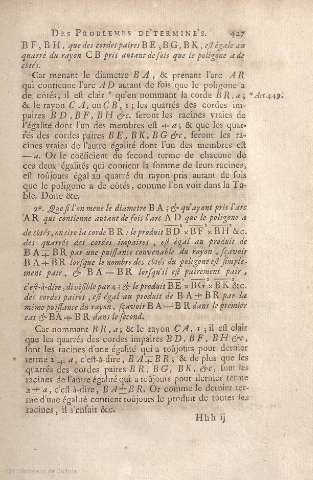 DES PROBLEMES DÉTERMINÉS. 427
BF, BH, que des cordes paires BE, BG, BK, est égale au
quarré du rayon CB pris autant de fois que le poligone a de
côtés.
Car menant le diametre BA, & prenant l'arc AR
qui contienne l'arc AD autant de fois que le poligone a
de côtés; il est clair * qu'en nommant la corde BR, a; * Art. 449.
& le rayon CA, ou CB, 1; les quarrés des cordes im-
paires BD, BF, BH &c. seront les racines vraies de
l'égalité dont l'un des membres est + a; & que les quar-
rés des cordes paires BE, BK, BG &c, seront les raci-
nes vraies de l'autre égalité dont l'un des membres est
— a. Or le coéficient du second terme de chacune de
ces deux égalités qui contient la somme de leurs racines,
est toûjours égal au quarré du rayon pris autant de fois
que le poligone a de côtés, comme l'on voit dans la Ta-
ble. Donc &c.
2°. Que si l'on mene le diametre BA; & qu'ayant pris l'arc
AR qui contienne autant de fois l'arc AD que le poligone a
de côtés, on tire la corde BR: le produit BD × BF × BH &c.
des quarrés des cordes impaires, est égal au produit de
BA ± BR par une puissance convenable du rayon, sçavoir
BA + BR lorsque le nombre des côtés du poligone est simple-
ment pair, & BA — BR lorsqu'il est pairement pair,
c'est-à-dire, divisible par 4: & le produit BE × BG × BK &c.
des cordes paires, est égal au produit de BA ∓ BR par la
même puissance du rayon, sçavoir BA — BR dans le premier
cas & BA + BR dans le second.
Car nommant BR, a; & le rayon CA, 1; il est clair
que les quarrés des cordes impaires BD, BF, BH &c,
sont les racines d'une égalité qui a toûjours pour dernier
terme 2 ± a, c'est-à-dire, BA ± BR; & de plus que les
quarrés des cordes paires BE, BG, BK, &c, sont les
racines de l'autre égalité qui a toûjours pour dernier terme
2 ∓ a, c'est-à-dire, BA ∓ BR. Or comme le dernier ter-
me d'une égalité contient toûjours le produit de toutes les
racines, il s'ensuit &c.
Hhh ij